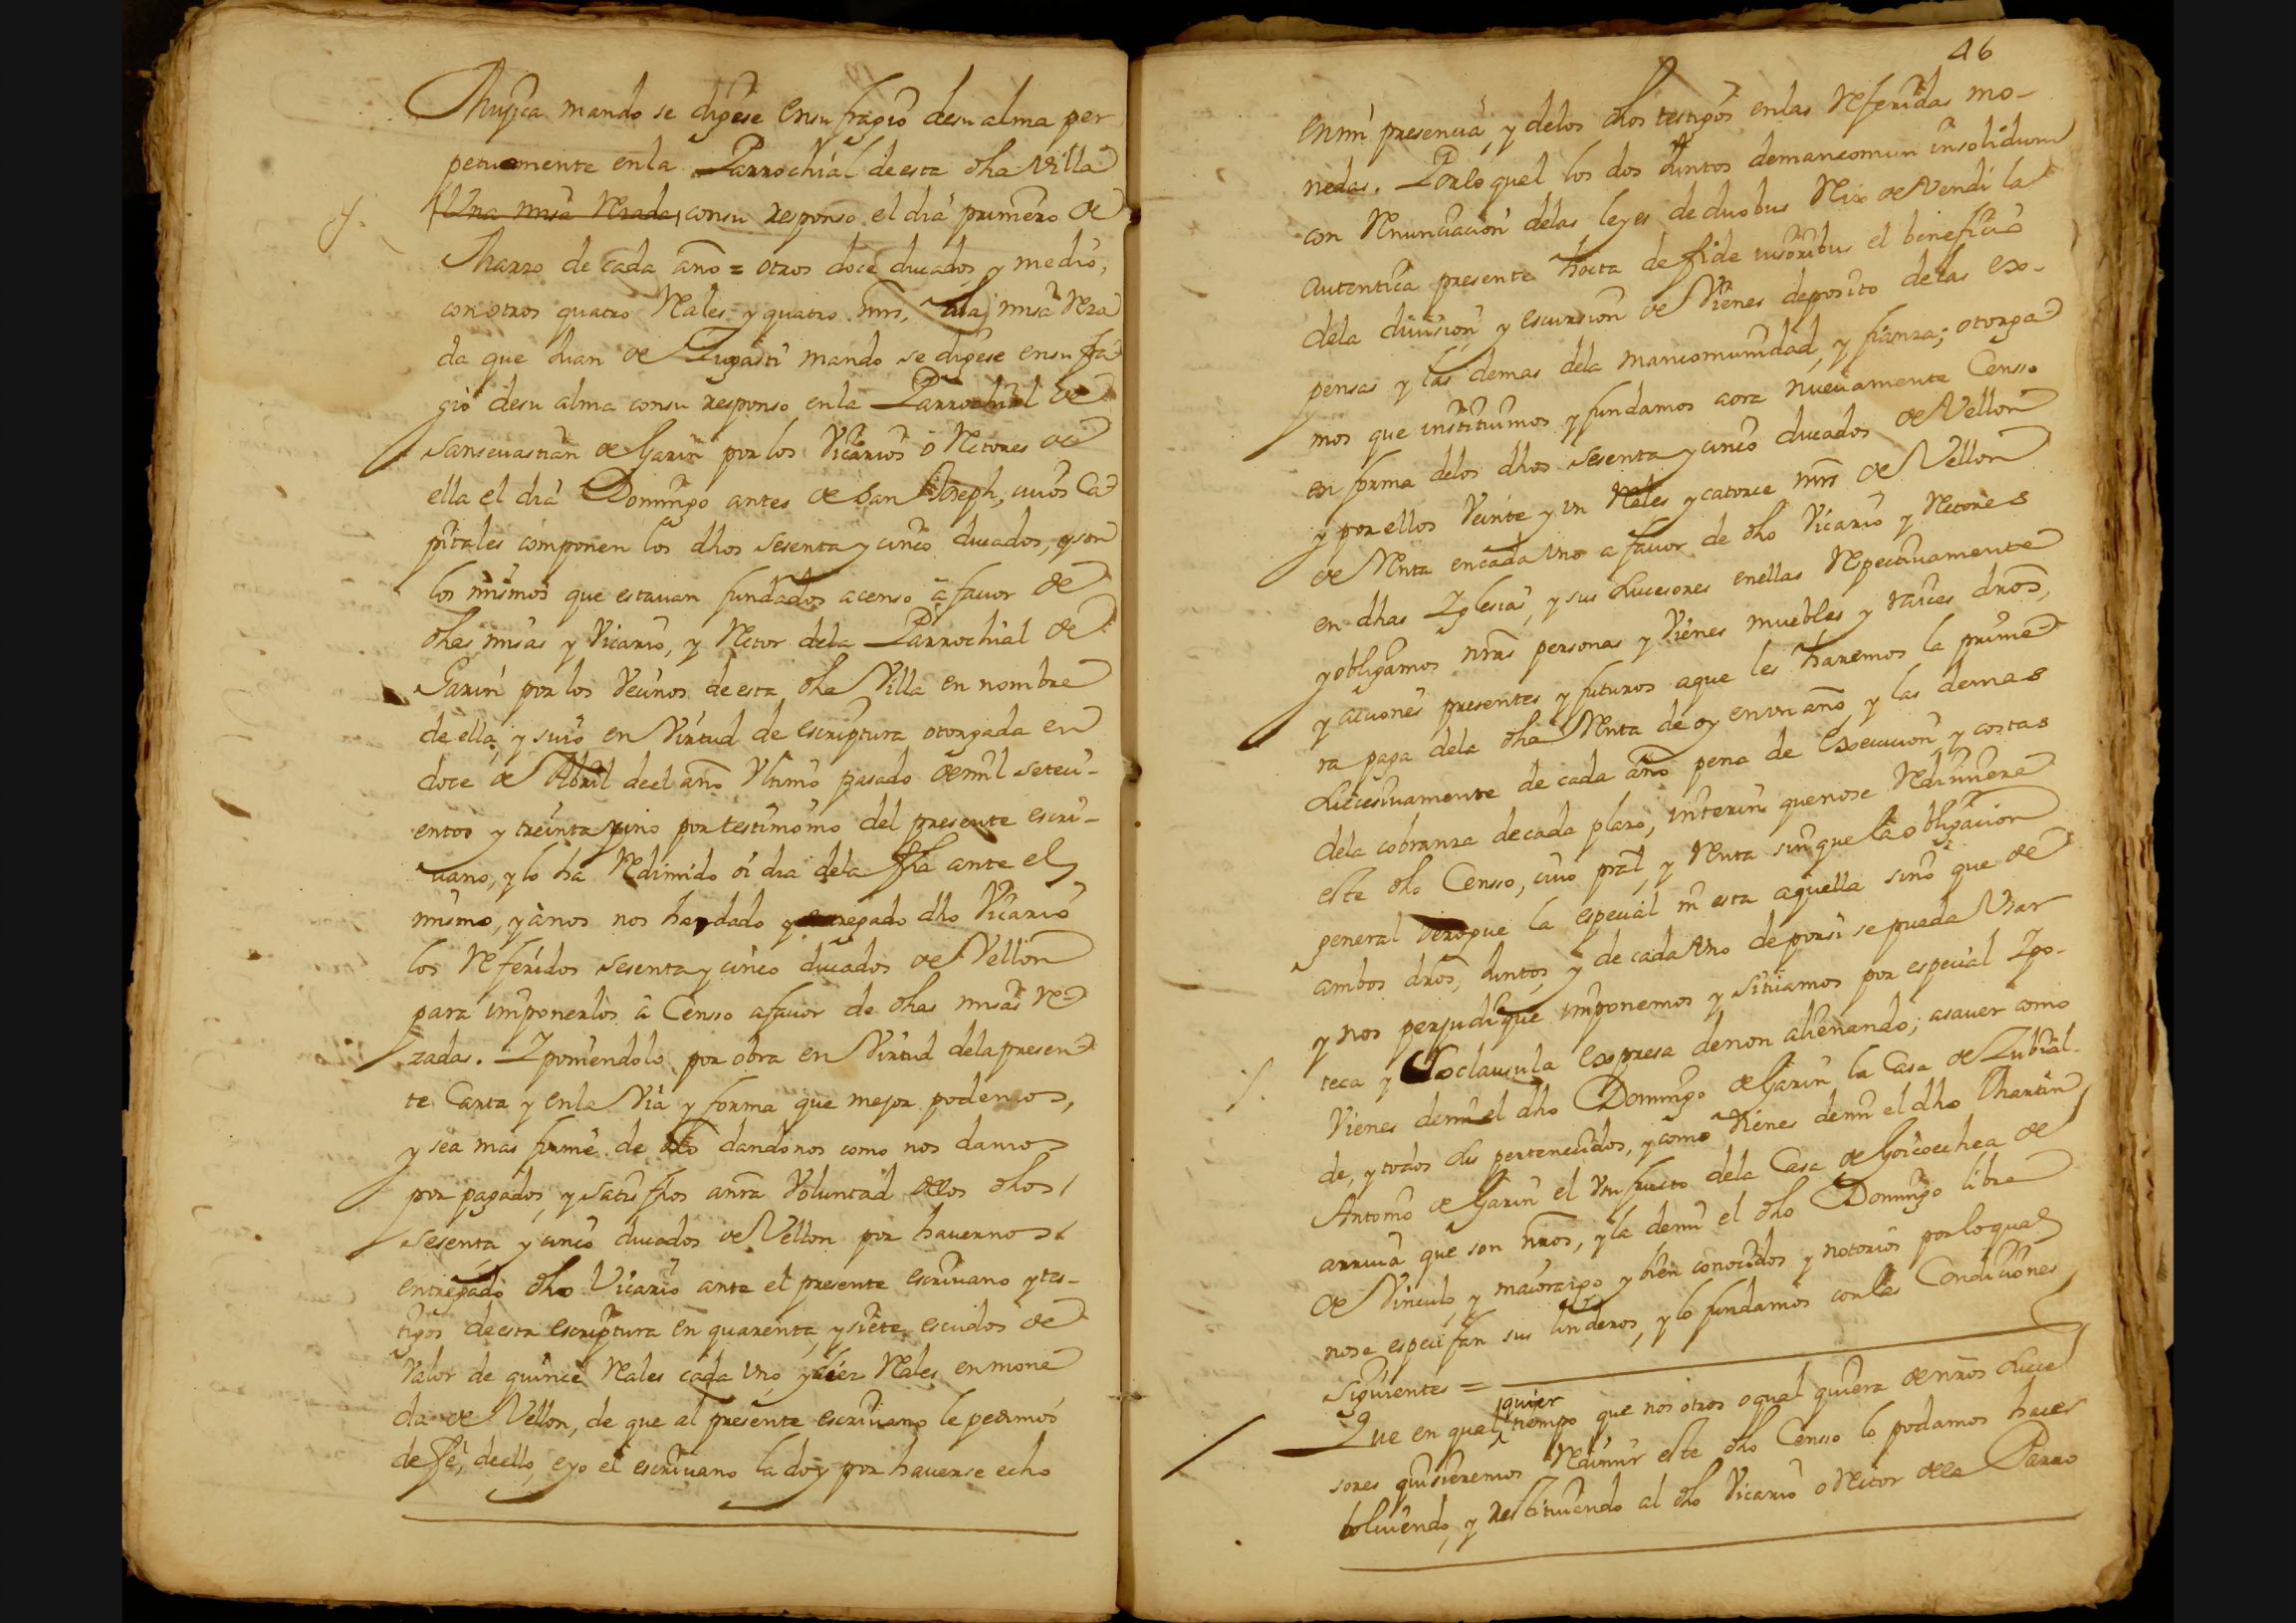 Muxica mando se digese ensufragio desu alma per
petuamente enla Parrochial deesta dha villa
Una misa Rezada, consu responso el dia primero de
Marzo de cada año = otros doce ducados y medio,
con otros quatro Rales y quatro mrs, ala misa Reza
da que Juan de Lugasti mando se digese ensufra
gio desu alma consu responso enla Parrochial de
Sansevastian de Garin por los Vicarios o Retores de
ella el dia Domingo antes de San Joseph, cuios Ca
pitales componen los dhos sesenta y cinco ducados, y son
los mismos que estavan fundados acenso à favor de
dhas misas y Vicario, y Retor dela Parrochial de
Garin por los Vecinos deesta dha Villa en nombre
de ella, y suio en Virtud de escriptura otorgada en
doce de Abril deel año Ultimo pasado demil seteci-
entos y treinta y uno por testimonio del presente escri-
uano, y lo ha Redimido oi dia dela fha ante el
mismo, y ànos nos ha dado y entregado dho Vicario
los Referidos sesenta y cinco ducados de Vellon
para imponerlos à Censo afavor de dhas misas re
zadas. Y poniendolo por obra en Virtud dela presen
te Carta y enla Via y forma que mejor podemos,
y sea mas firme de dro dandonos como nos damos
por pagados, y satisfhos anra Voluntad delos dhos
sesenta y cinco ducados de Vellon por havernos
entregado dho Vicario ante el presente escrivano y tes-
tigos deesta escriptura en quarenta, y siete escudos de
Valor de quince Rales cada uno y diez Rales enmone
da de Vellon, de que al presente escrivano le pedimos
de fe, deello, e yo el escrivano la doy por haverse echo
46
enmi presencia, y delos dhos testigos enlas Referidas mo-
nedas. Porloqual los dos Juntos demancomun insolidum
con Renunciacion delas leyes de duobus Rex de Vendi la
autentica presente hocta de fide iusoribus el beneficio
dela division, y escursion de Vienes deposito delas ex-
pensas y las demas dela mancomunidad, y fianza; otorga
mos que instituimos y fundamos aora nuevamente Censso
en forma delos dhos sesenta y cinco ducados de Vellon
y por ellos Veinte y un Rales y catorce mrs de Vellon
de Renta encada uno a favor de dho Vicario y Retores
en dhas Yglesias, y sus Sucesores enellas Respectivamente
y obligamos nras personas y Vienes muebles y raices dros,
y acciones presentes y futuros aque les haremos la prime
ra paga dela dha Renta de oy en un año, y las demas
Sucesivamente de cada año pena de Execucion y costas
dela cobranza decada plazo, interin quenose Redimiere
este dho Censso, cuio pral, y renta sinque la obligacion
general derogue la especial ni esta aquella sino que de
ambos dros, Juntos, y de cada uno deporsi se pueda Usar
y nos perjudique imponemos y sitiamos por especial Ypo-
teca y So clausula Expresa denon alienando; asaver como
Vienes demi el dho Domingo de Garin la Casa de Zubial-
de, y todos sus pertenecidos, y como Vienes demi el dho Martin
Antonio de Garin el Usufruto dela Casa de Goicoechea de
arriva que son nros, y la demi el dho Domingo libre
de Vinculo, y maiorazgo y bien conocidos y notorios porloqual
nose especifan sus linderos, y lo fundamos conlas Condiciones
siguientes =
Que en qual quier tiempo que nosotros o qual quiera denros Suce
sores quisieremos Redimir este dho Censso lo podamos hacer
bolviendo, y restituiendo al dho Vicario o Retor dela Parro